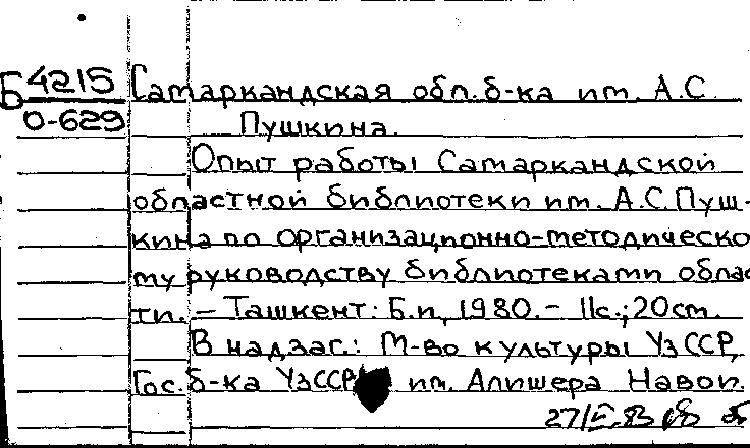 Б 4215 Самаркандская обл. б-ка им. А.С.
0-629 Пушкина.
Опыт работы Самаркандской
областной библиотеки им. А.С. Пуш-
кина по организационно-методическо
му руководству библиотеками облас
ти. – Ташкент: Б.и, 1980. – 11с.; 20 см.
В надзаг.: М-во культуры УзССР,
Гос. б-ка УзССР им. Алишера Навои.